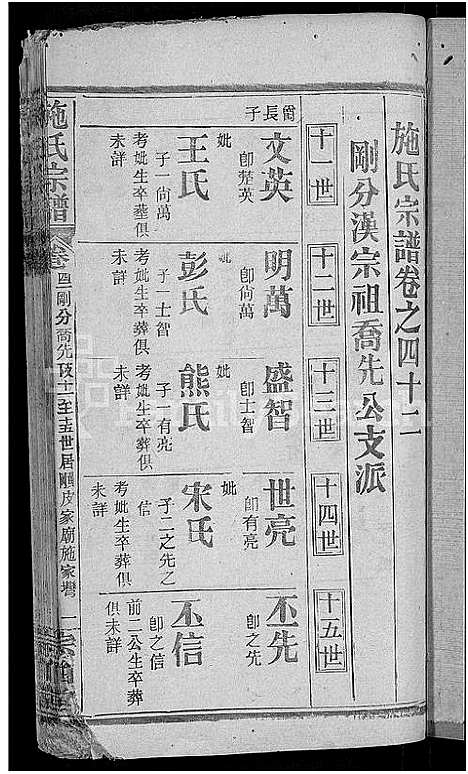 施氏宗譜卷之四十二
剛分漢宗祖喬先公支派
十一世
十二世
十三世
十四世
十五世
長子
文英
即棼英
妣
王氏
子一尚萬
考妣生卒葬俱
未詳
明萬
即尚萬
妣
彭氏
子一士智
考妣生卒葬俱
未詳
盛智
即士智
妣
熊氏
子一有亮
考妣生卒葬俱
未詳
世亮
即有亮
妣
宋氏
子二之先之
信
考妣生卒葬俱
未詳
丕先
即之先
丕信
即之信
前二公生卒葬
俱未詳
施氏宗譜
剛分喬先
至十五世居
皮家廟施家灣
一